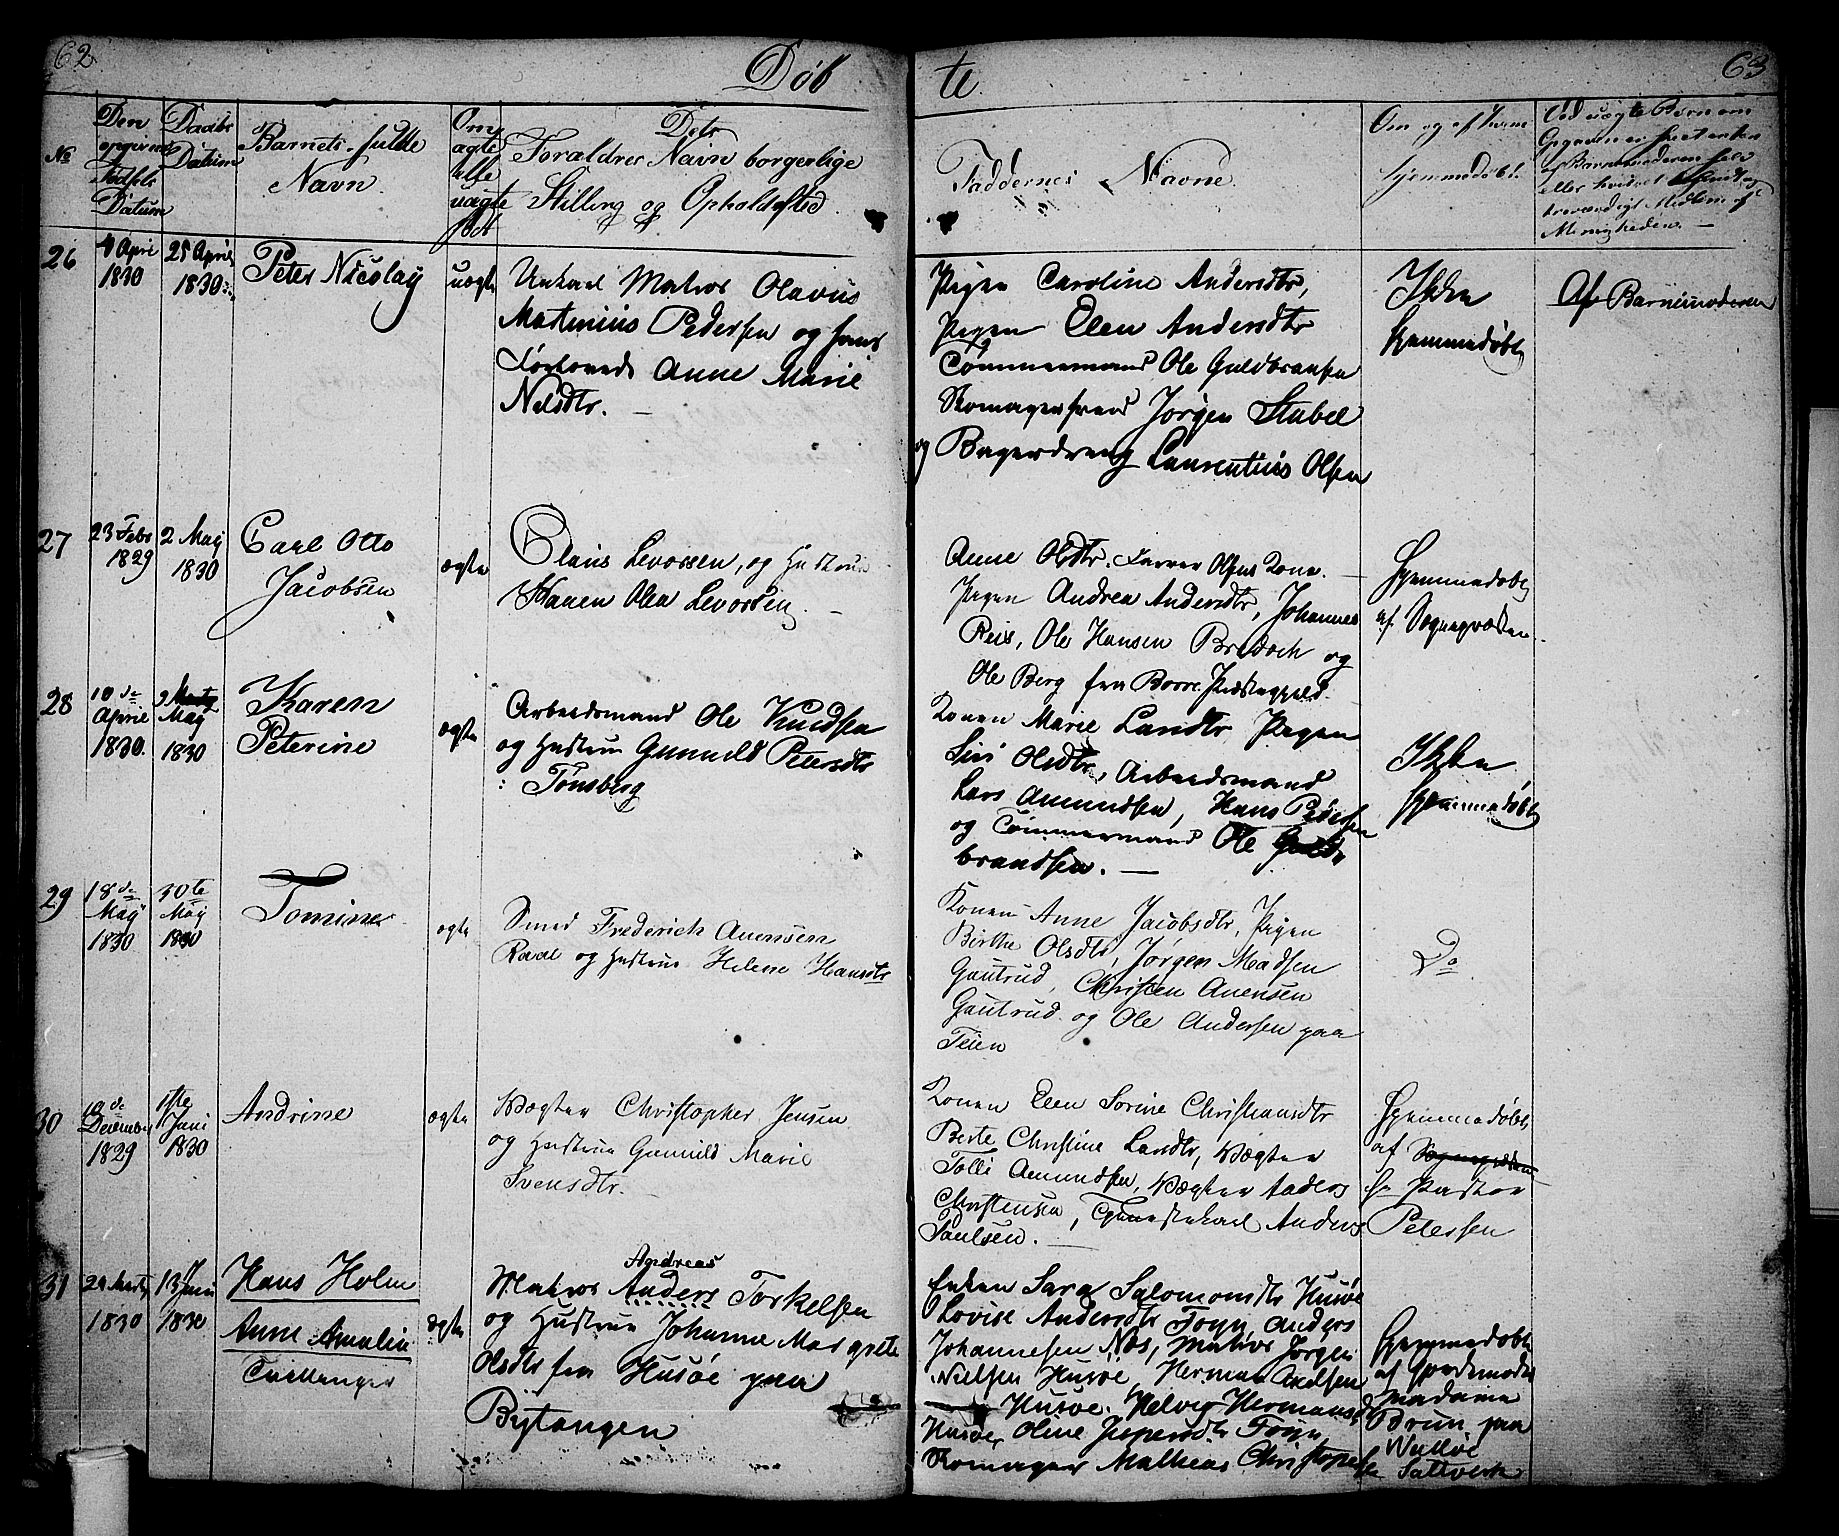 62
Døb
te
63
No
Den opgivne Fødsels Datum
Daabs Datum
Barnets fulde Navn.
Om ægte elle uægte født
Dets Forældres Navn borgerlige Stilling og Opholdssted.
Faddernes Navne.
Om og af hvem hjemmedøbt.
Ved uægte Børn om
Opgaven er skeet enten
af Barnemoderen selv
eller hvilket
troværdigt Medlem af
Menigheden. —
26
4 April
1830
25 April
1830
Peter Nicolay
uægte
Unkarl Matros Olavus
Martinius Pedersen og hans
Forlovede Anne Marie
Nelsdtr. —
Pigen Caroline Andersdtr,
Pigen Elen Andersdtr
Tømmermand Ole Guldbransen
Skomagersvend Jørgen Stabel
og Bagerdreng Laurentius Olsen
Ikke
hjemmedøbt
Af Barnemoderen
27
23 Febr
1829
2 May
1830
Carl Otto
Jacobsen
ægte
Claus Levorsen, og Hustrue
Karen Olea Levorsen. —
Anne Olsdtr. Farver Olsens Kone. —
Pigen Andrea Andersdtr, Johannes
Reis, Ole Hansen Bredoch og
Ole Berg fra Borre Præstegjeld.
Hjemmedøbt
af Sognepræsten.
28
10de
April
1830.
9
May
1830
Karen
Peterine
ægte
Arbeidsmand Ole Knudsen
og Hustrue Gunnild Petersdtr
: Tønsberg
Konen Marie Larsdtr, Pigen
Siri Olsdtr, Arbeidsmand
Lars Amundsen, Hans Pedersen
og Tømmermand Ole Guld-
brandsen. —
Ikke
hjemmedøbt
29
18de
May
1830
30te
May
1830
Tomine
ægte
Smed Frederich Auensen
Raael og Hustrue Helene Hansdtr
Konen Anne Jacobsdtr, Pigen
Birthe Olsdtr, Jørgen Madsen
Gautrud, Christen Auensen
Gautrud og Ole Andersen paa
Teien
Do
30
18de
December
1829
1ste
Juni
1830
Andrine
ægte
Vægter Christopher Jensen
og Hustrue Gunnild Marie
Svensdtr. —
Konen Elen Sorine Christiansdtr
Berte Christine Larsdtr, Vægter
Tolle Amundsen, Vægter Anders
Christensen, Tjenestekarl Anders
Paulsen. —
Hjemmedøbt
af Sognepræsten
Hr Pastor
Petersen
31
1830
13 Juni
1830
Hans Holm
Anne Amalia
Tvillinger
ægte
Andreas
Matros Anders Torkelsen
og Hustrue Johanne Margrete
Olsdtr fra Husøe paa
Bytangen
Enken Sara Salomonsdtr Husøe
Lovise Andersdtr Foyn Anders
Johannesen Næs, Matros Jørgen
Nielsen Husøe, Herman Axelsen
Husøe. Helvig Hermansd
Husøe, Oline Jespersdtr Foyn
Skomager Mathias Christophersen
Hjemmedøbt
af Jordemoder
Madame
Brun paa
Walløe
Saltverk